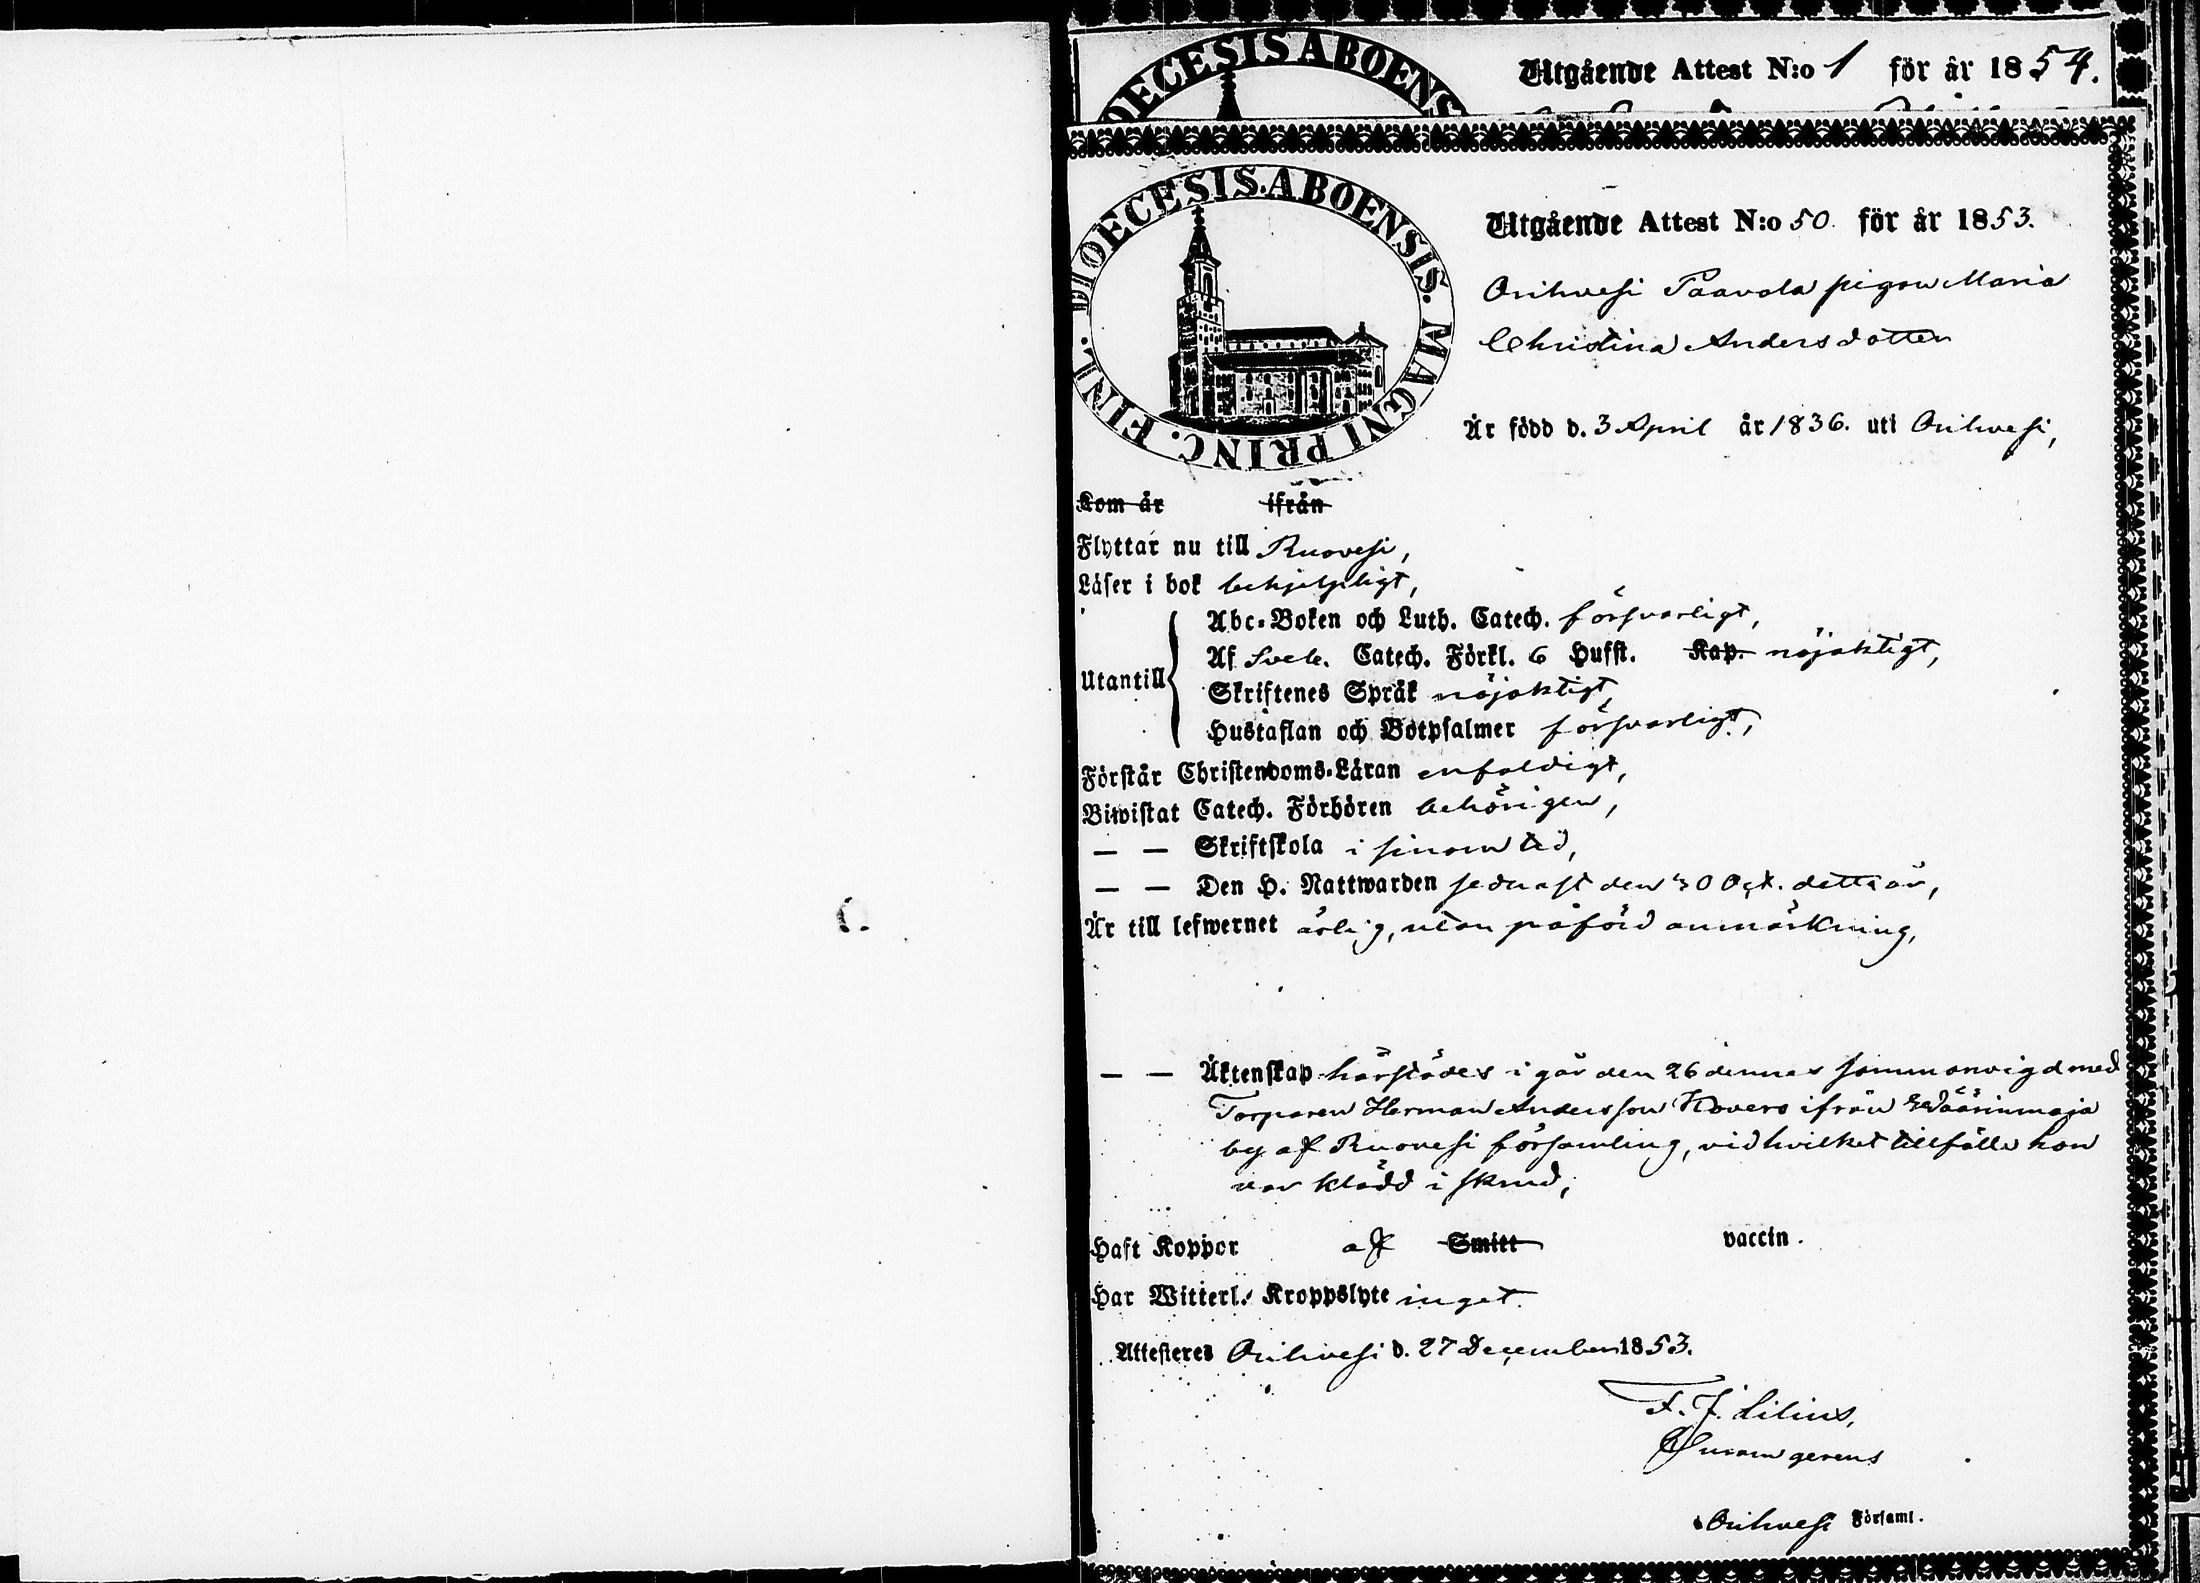 DIOECESIS ABOENS
Utgående Attest N:o 1 för år 1854.
DIOECESIS. ABOENSIS. MAGNI PRINC. FINL.
Utgående Attest N:o 50. för år 1853.
Orihvesi Paavola pigan Maria
Christina Andersdotter
Är född d. 3 April år 1836. uti Orihvesi,
Kom år ifrån
Flyttar nu till Ruovesi,
Läser i bok behjelpligt,
Utantill
Abc-Boken och Luth. Catech. försvarligt,
Af Sveb. Catech. Förkl. 6 Hufst. Kap. nöjaktigt,
Skriftenes Språk nöjaktigt,
Hustaflan och Botpsalmer försvarligt,
Förstår Christendoms-Läran enfaldigt,
Biwistat Catech. Förhören behörigen,
— — Skriftskola i sinom tid,
— — Den H. Nattwarden sednast den 30 Oct. detta år,
Är till lefwernet ärlig, utan påförd anmärkning,
— — Äktenskap härstädes i går den 26 dennes sammanvigd med
Torparen Herman Andersson Kovero ifrån Wäärinmaja
by af Ruovesi församling, vid hvilket tillfälle hon
var klädd i skrud,
Haft Koppor af Smitt vaccin.
Har Witterl. Kroppslyte inget.
Attesteres Orihvesi d. 27 December 1853.
F. J. Lilius,
gerens
Orihvesi Församl.